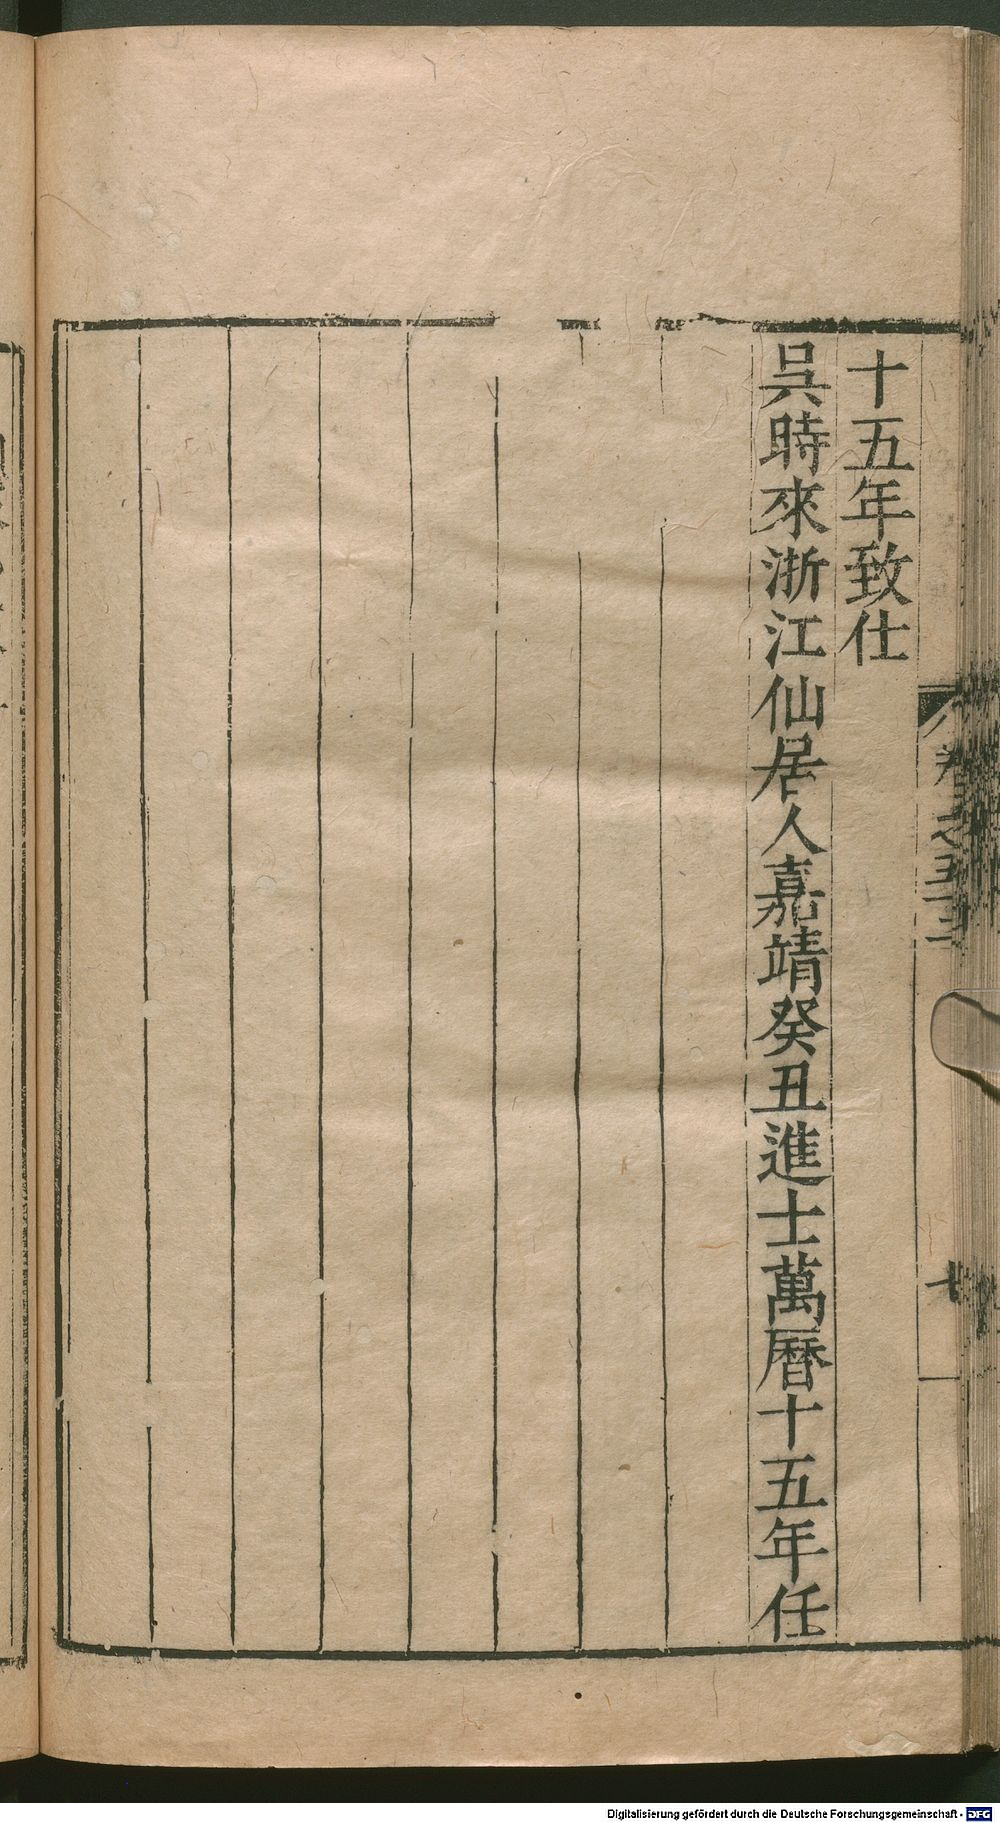 卷之五十三
十五年致仕
吳時來浙江仙居人嘉靖癸丑進士萬曆十五年任
Digitalisierung gefördert durch die Deutsche Forschungsgemeinschaft - DFG